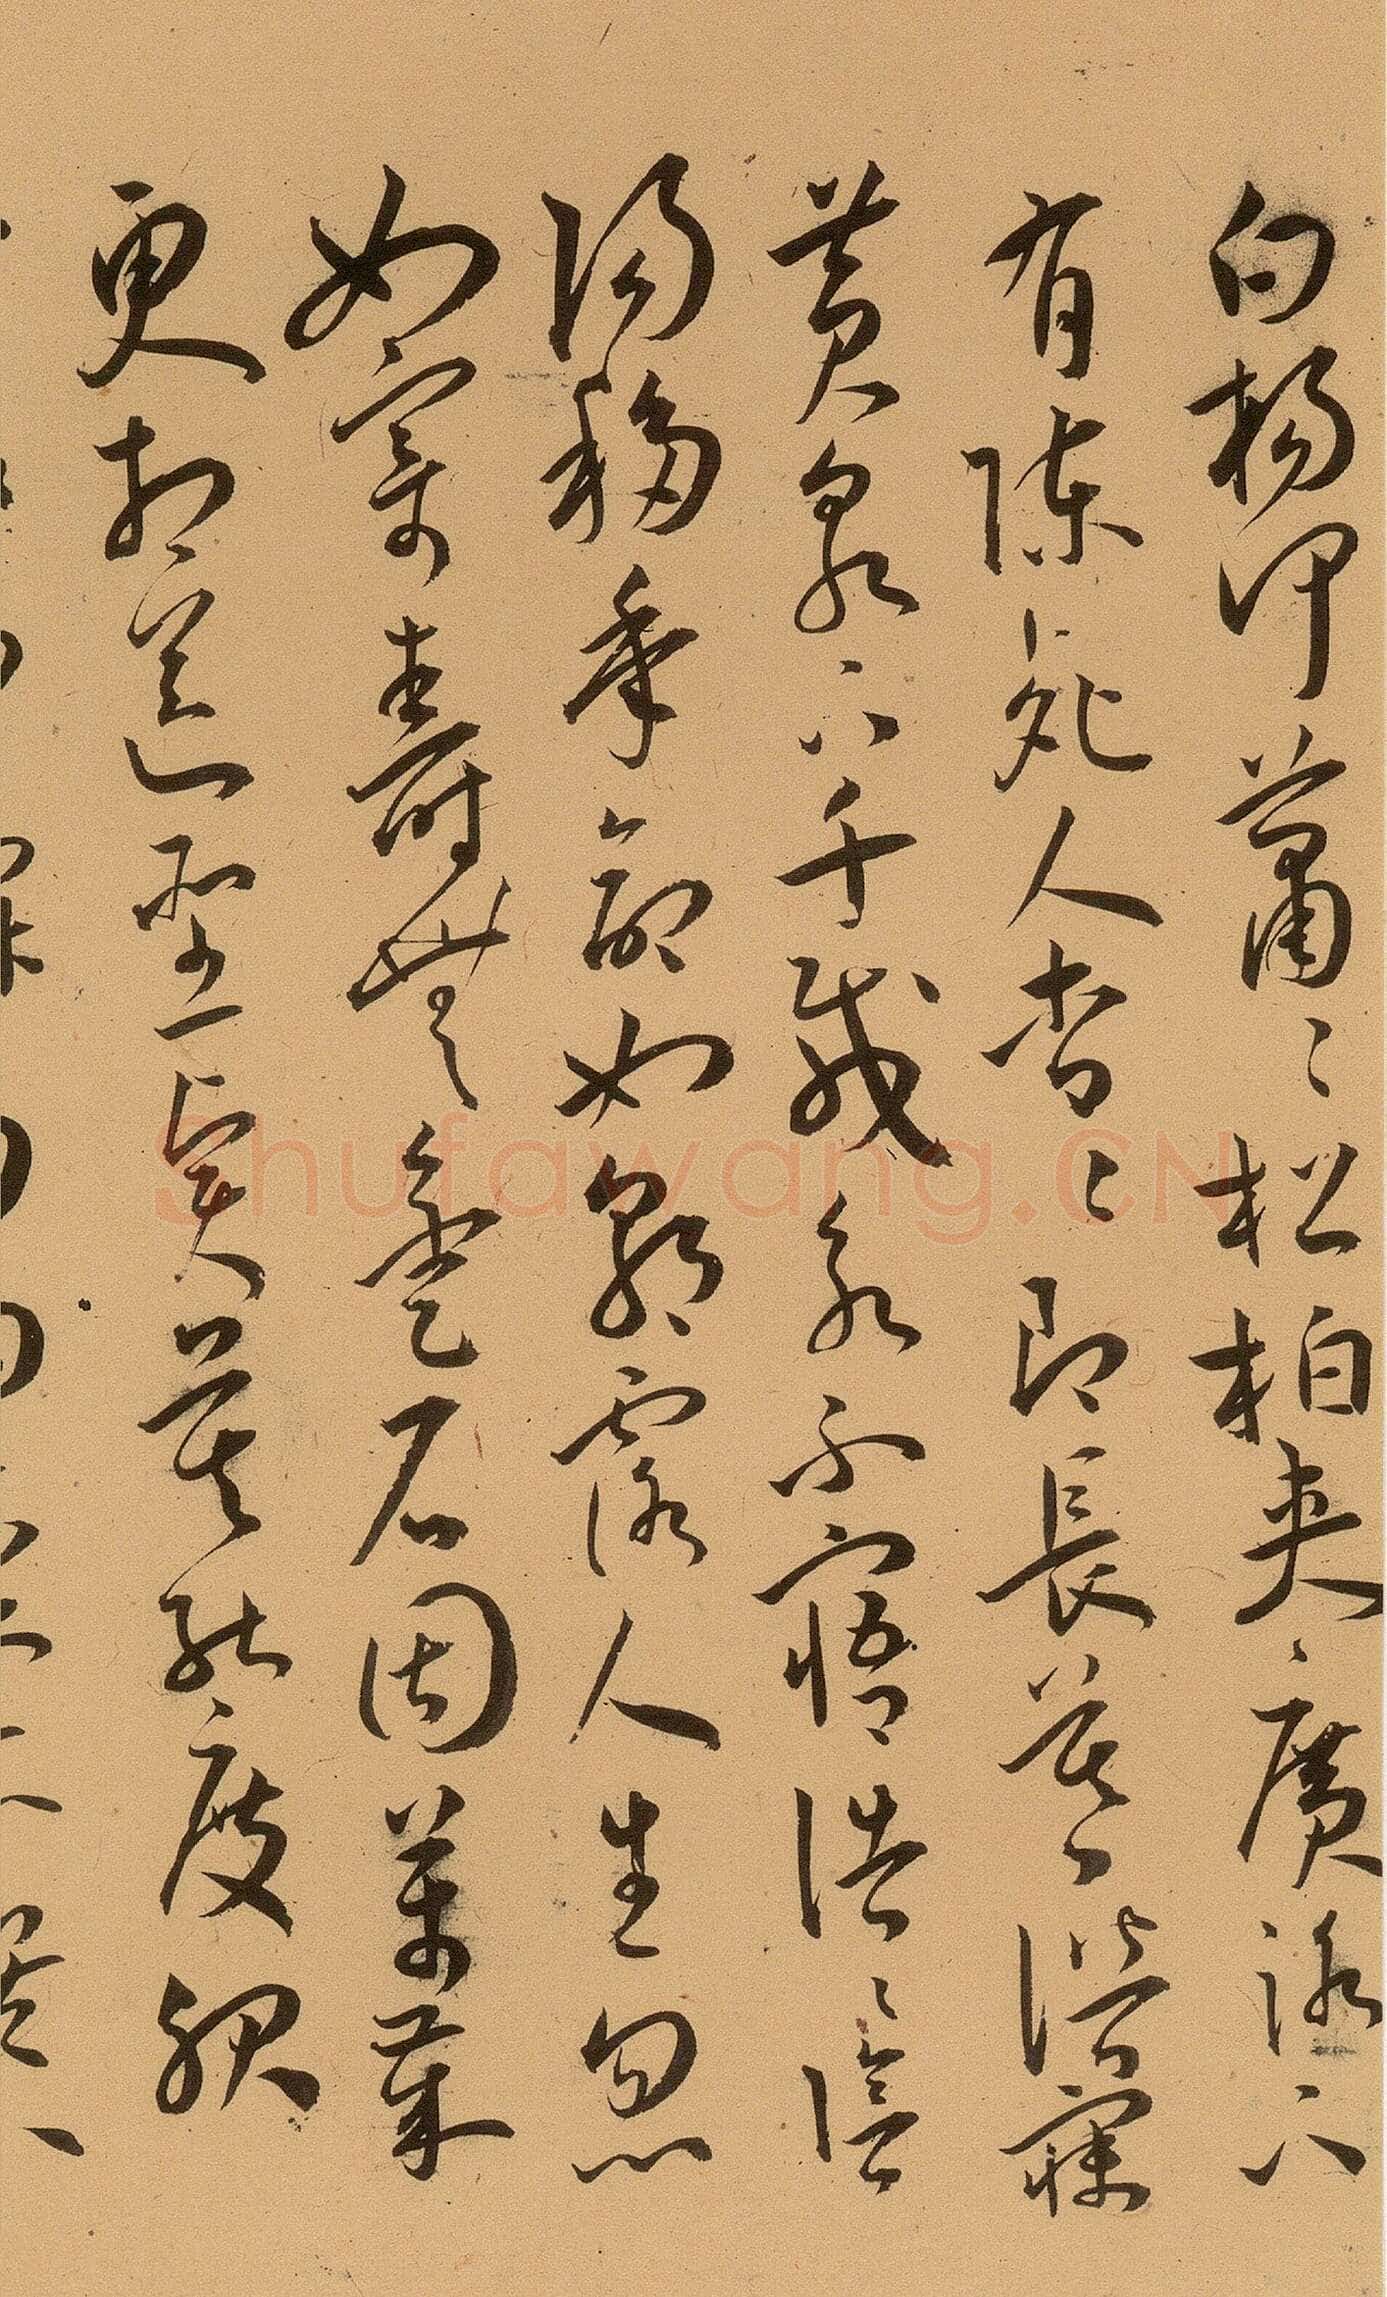 白楊何蕭〻松柏夾廣路下
有陳死人杳〻即長暮潛寐
黃泉下千載永不寤浩〻陰
陽移年命如朝露人生忽
如寄壽無金石固萬歲
更相送聖賢莫能度服
Shufawang.CN